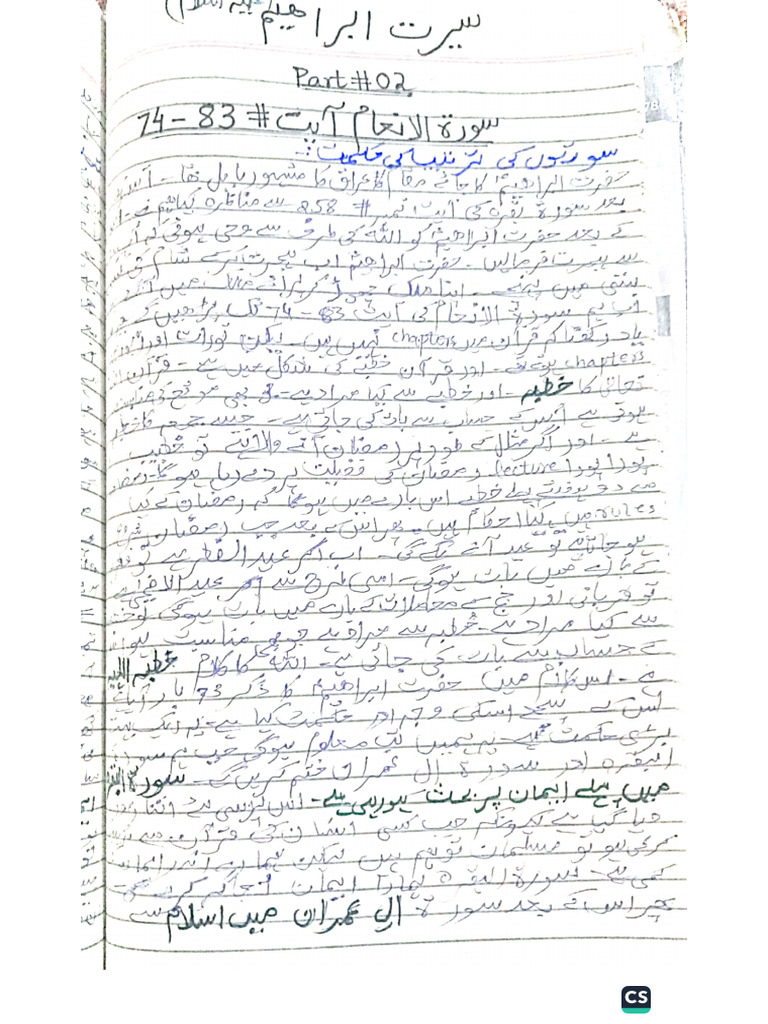 سیرت ابراہیم علیہ السلام
Part#02
سورۃ الانعام آیت # 83 - 74
سورتوں کی ترتیب کی حکمت :-
حضرت ابراہیمؑ کا جائے مقام عراق کا مشہور بابل تھا - اس
بعد سورۃ بقرہ کی آیت نمبر # 258 سے مناظرہ کیا
کے بعد حضرت ابراہیمؑ کو اللہ کی طرف سے وحی ہوئی کہ اب
سے ہجرت فرمالیں - حضرت ابراہیمؑ اب ہجرت کرکے شام کی
بستی میں پہنچے - اپنا ملک چھوڑ کر میں
اب ہم سورۃ الانعام کی آیت 83 - 74 تک پڑھیں گے
یاد رکھنا کہ قرآن میں chapters نہیں ہیں - لیکن تورات اور
chapters ہوتے تھے - اور قرآن خطبے کی شکل میں ہے - قرآن
تعالیٰ کا خطبہ - اور خطبے سے کیا مراد ہے - جو بھی موقع
ہوتا ہے اس کے حساب سے بات کی جاتی ہے - جیسے جمعہ کا خطبہ
ہے - اور اگر مثال کے طور پر رمضان آنے والا ہے تو خطیب
پورا پورا lecture رمضان کی فضیلت پر دے رہا ہوگا - رمضان
سے دو ہفتے پہلے خطبہ اس بارے میں ہوگا کہ رمضان کے کیا
rules ہیں، کیا احکام ہیں - پھر اس کے بعد جب رمضان شروع
ہو جاتا ہے تو عید آنے لگے گی - اب اگر عید الفطر ہے تو
کے بارے میں بات ہوگی - اسی طرح سے اگر عید الاضحیٰ ہے
تو قربانی اور حج کے معاملات کے بارے میں بات ہوگی تو
سے کیا مراد ہے - خطبہ سے مراد ہے جو مناسبت ہو
کے حساب سے بات کی جاتی ہے - اللہ کا کلام خطبہ الہیہ
ہے - اس کلام میں حضرت ابراہیمؑ کا ذکر 73 بار آیا ہے
اس کے پیچھے اسکی وجہ اور حکمت کیا ہے - یہ ایک بہت
بڑی حکمت ہے - یہ ہمیں تب معلوم ہوگی جب ہم سورۃ
البقرہ اور سورۃ ال عمران ختم کریں گے - سورۃ البقرہ
میں پہلے ایمان پر بحث ہو رہی ہے - اس لئے اتنا
دیا گیا ہے کیونکہ جب کسی انسان کی قرآن
ہو تو مسلمان تو ہم ہیں لیکن ہمارے اندر ایمان
کمی ہے - سورۃ البقرہ ہمارا ایمان کرے گی
پھر اس کے بعد سورۃ الِ عمران میں اسلام سے
CS